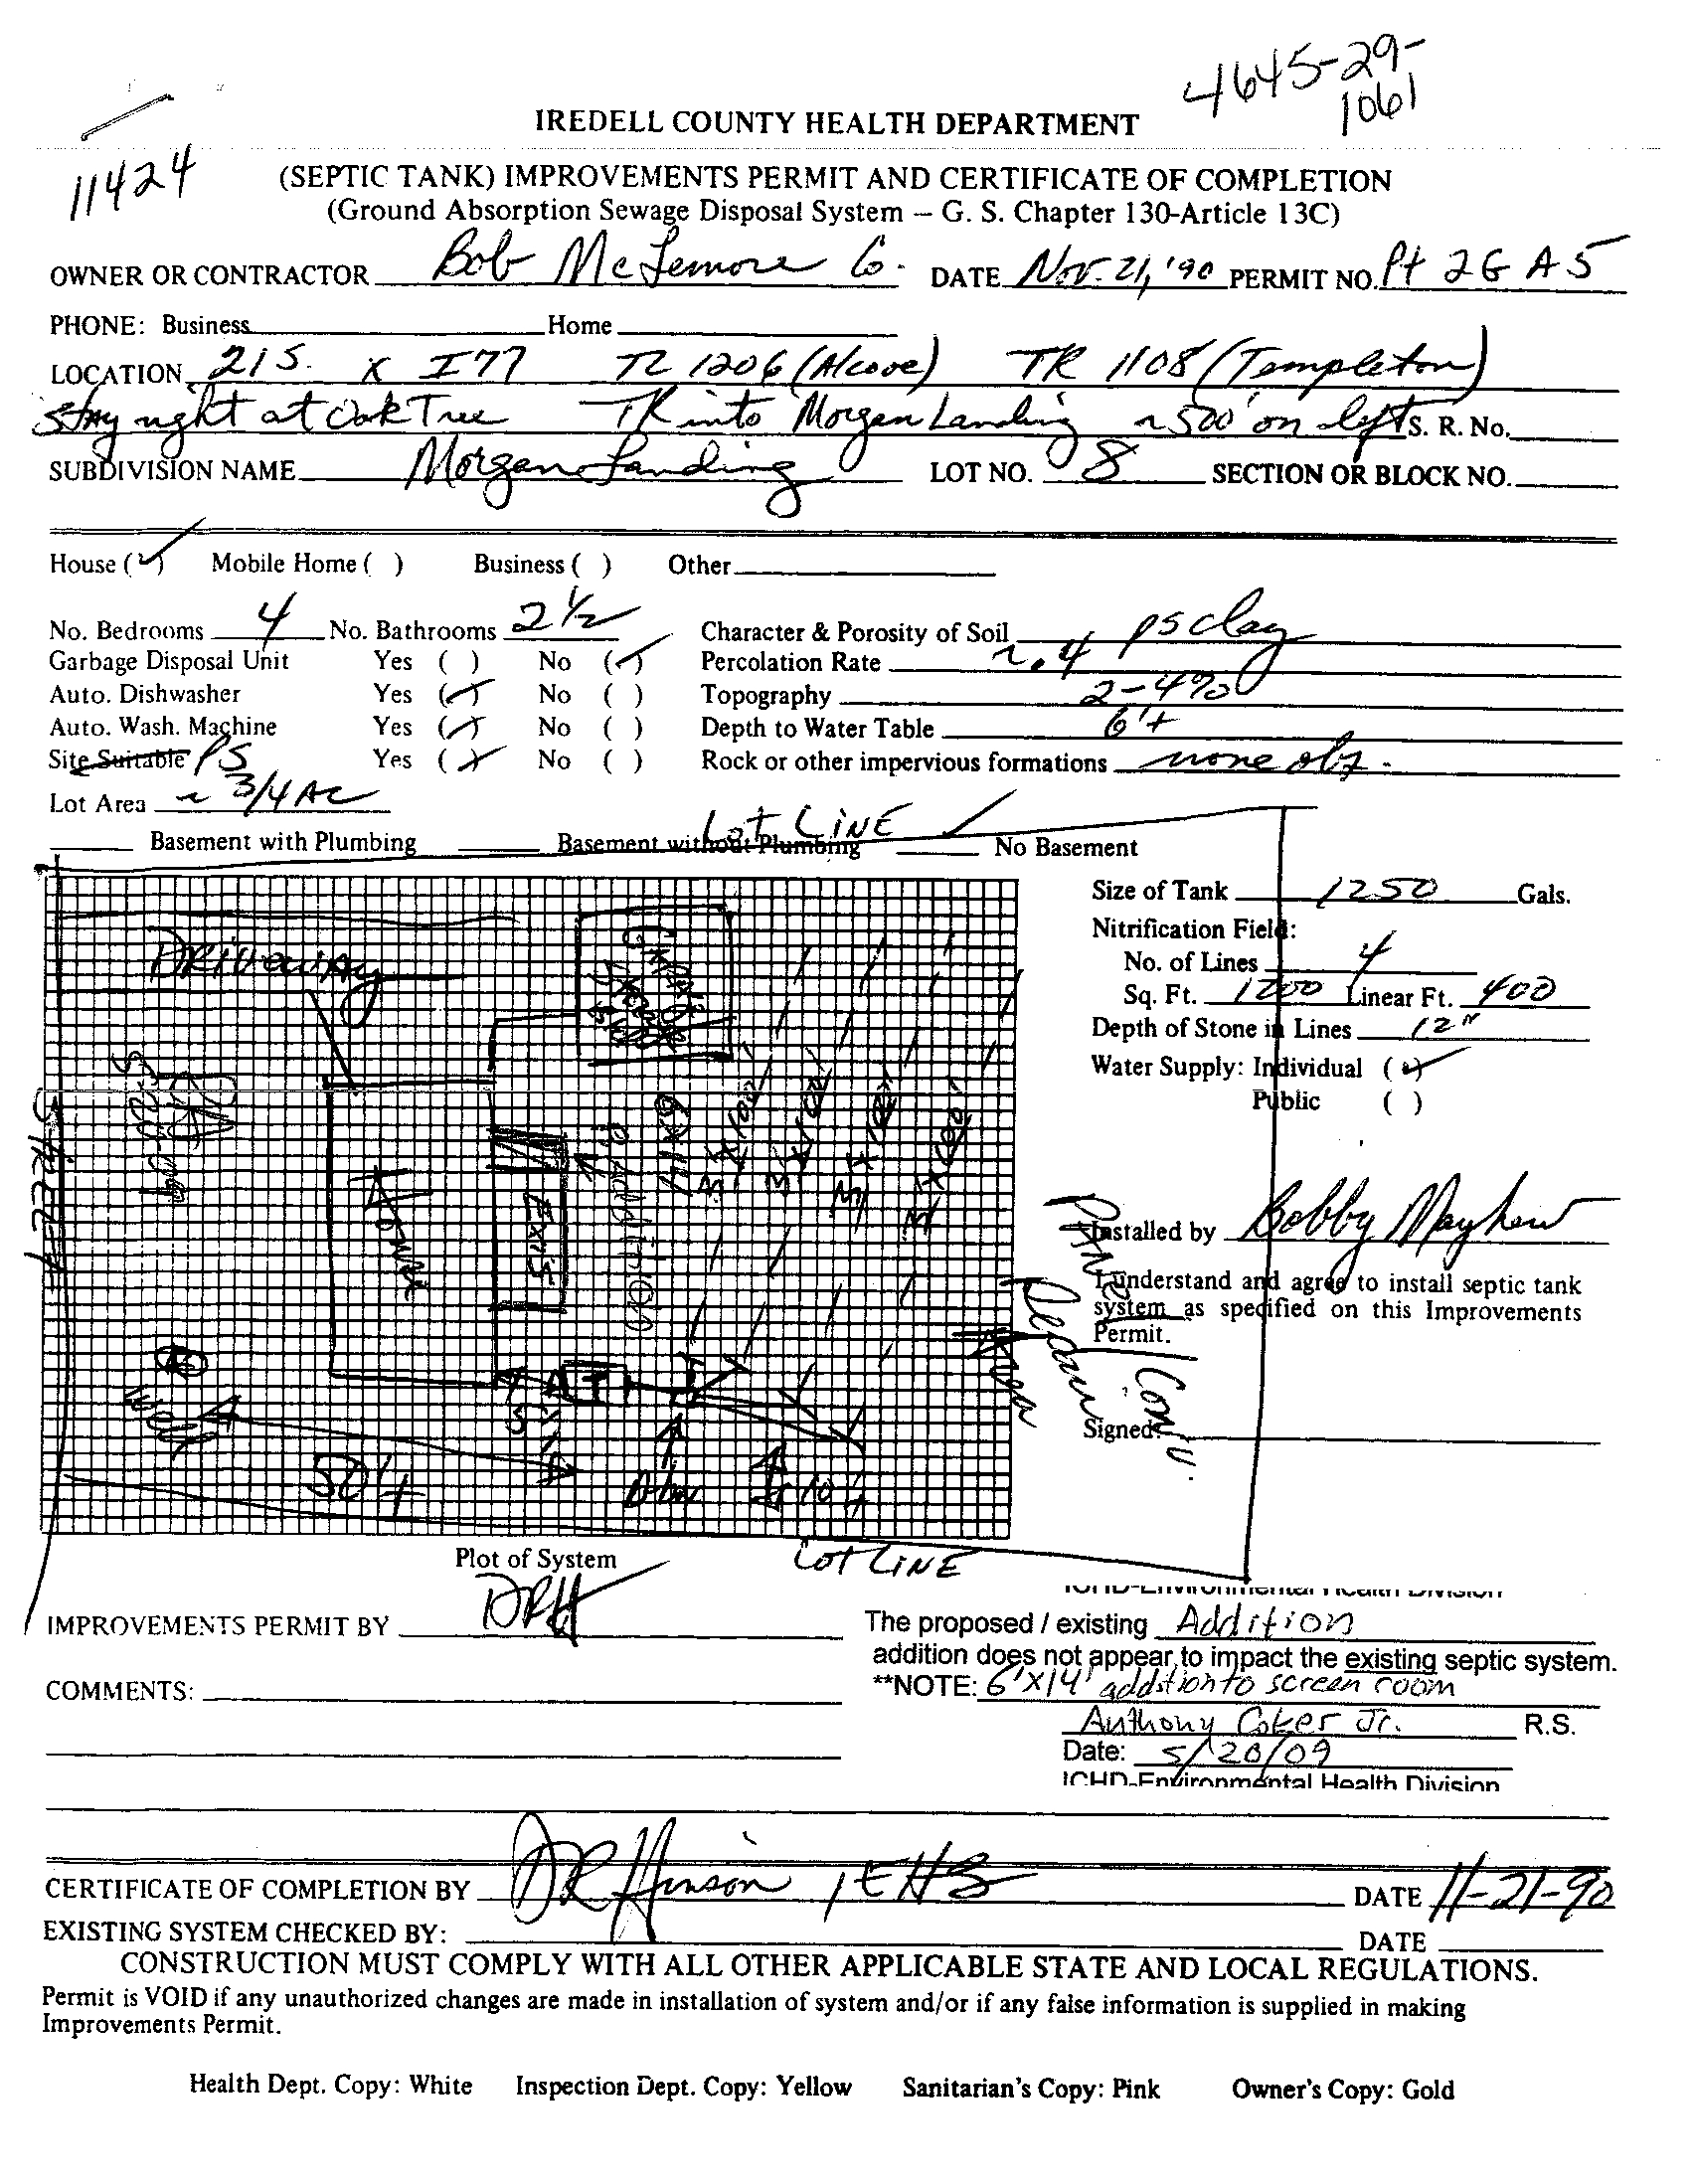 4645-29-
1061
IREDELL COUNTY HEALTH DEPARTMENT
11424
(SEPTIC TANK) IMPROVEMENTS PERMIT AND CERTIFICATE OF COMPLETION
(Ground Absorption Sewage Disposal System – G. S. Chapter 130-Article 13C)
OWNER OR CONTRACTOR Bob McLemore Co. DATE Nov. 21, '90 PERMIT NO. Pt 2G A5
PHONE: Business Home
LOCATION 21S. X I77 TL 1206 (Alcove) TR 1108 (Templeton)
stay right at Oak Tree TR into Morgan Landing ~500' on left S. R. No.
SUBDIVISION NAME Morgan Landing LOT NO. 8 SECTION OR BLOCK NO.
House (✓) Mobile Home ( ) Business ( ) Other
No. Bedrooms 4 No. Bathrooms 2 1/2 Character & Porosity of Soil ps clay
Garbage Disposal Unit Yes ( ) No (✓) Percolation Rate ~.4
Auto. Dishwasher Yes (✓) No ( ) Topography 2-4%
Auto. Wash. Machine Yes (✓) No ( ) Depth to Water Table 6'+
Site Suitable PS Yes (✓) No ( ) Rock or other impervious formations none obs.
Lot Area ~ 3/4 AC
LOT LINE
Basement with Plumbing Basement without Plumbing ✓ No Basement
Size of Tank 1250 Gals.
Nitrification Field:
No. of Lines 4
Sq. Ft. 1200 Linear Ft. 400
Depth of Stone in Lines 12"
Water Supply: Individual (✓)
Public ( )
Driveway
STREET
House
Exis
6x14
Addition
3 x 100'
3 x 100'
3 x 100'
3 x 100'
Well
50'+
5'
T
D-box
10'+
Area
Repair
Conv.
Installed by Bobby Mayhew
I understand and agree to install septic tank
system as specified on this Improvements
Permit.
Signed:
Plot of System
LOT LINE
IMPROVEMENTS PERMIT BY DRH
COMMENTS:
ICHD-Environmental Health Division
The proposed / existing Addition
addition does not appear to impact the existing septic system.
**NOTE: 6'X14' addition to screen room
Anthony Coker Jr. R.S.
Date: 5/20/09
ICHD-Environmental Health Division
CERTIFICATE OF COMPLETION BY DR Hinson, EHS DATE 11-21-90
EXISTING SYSTEM CHECKED BY: DATE
CONSTRUCTION MUST COMPLY WITH ALL OTHER APPLICABLE STATE AND LOCAL REGULATIONS.
Permit is VOID if any unauthorized changes are made in installation of system and/or if any false information is supplied in making
Improvements Permit.
Health Dept. Copy: White Inspection Dept. Copy: Yellow Sanitarian's Copy: Pink Owner's Copy: Gold